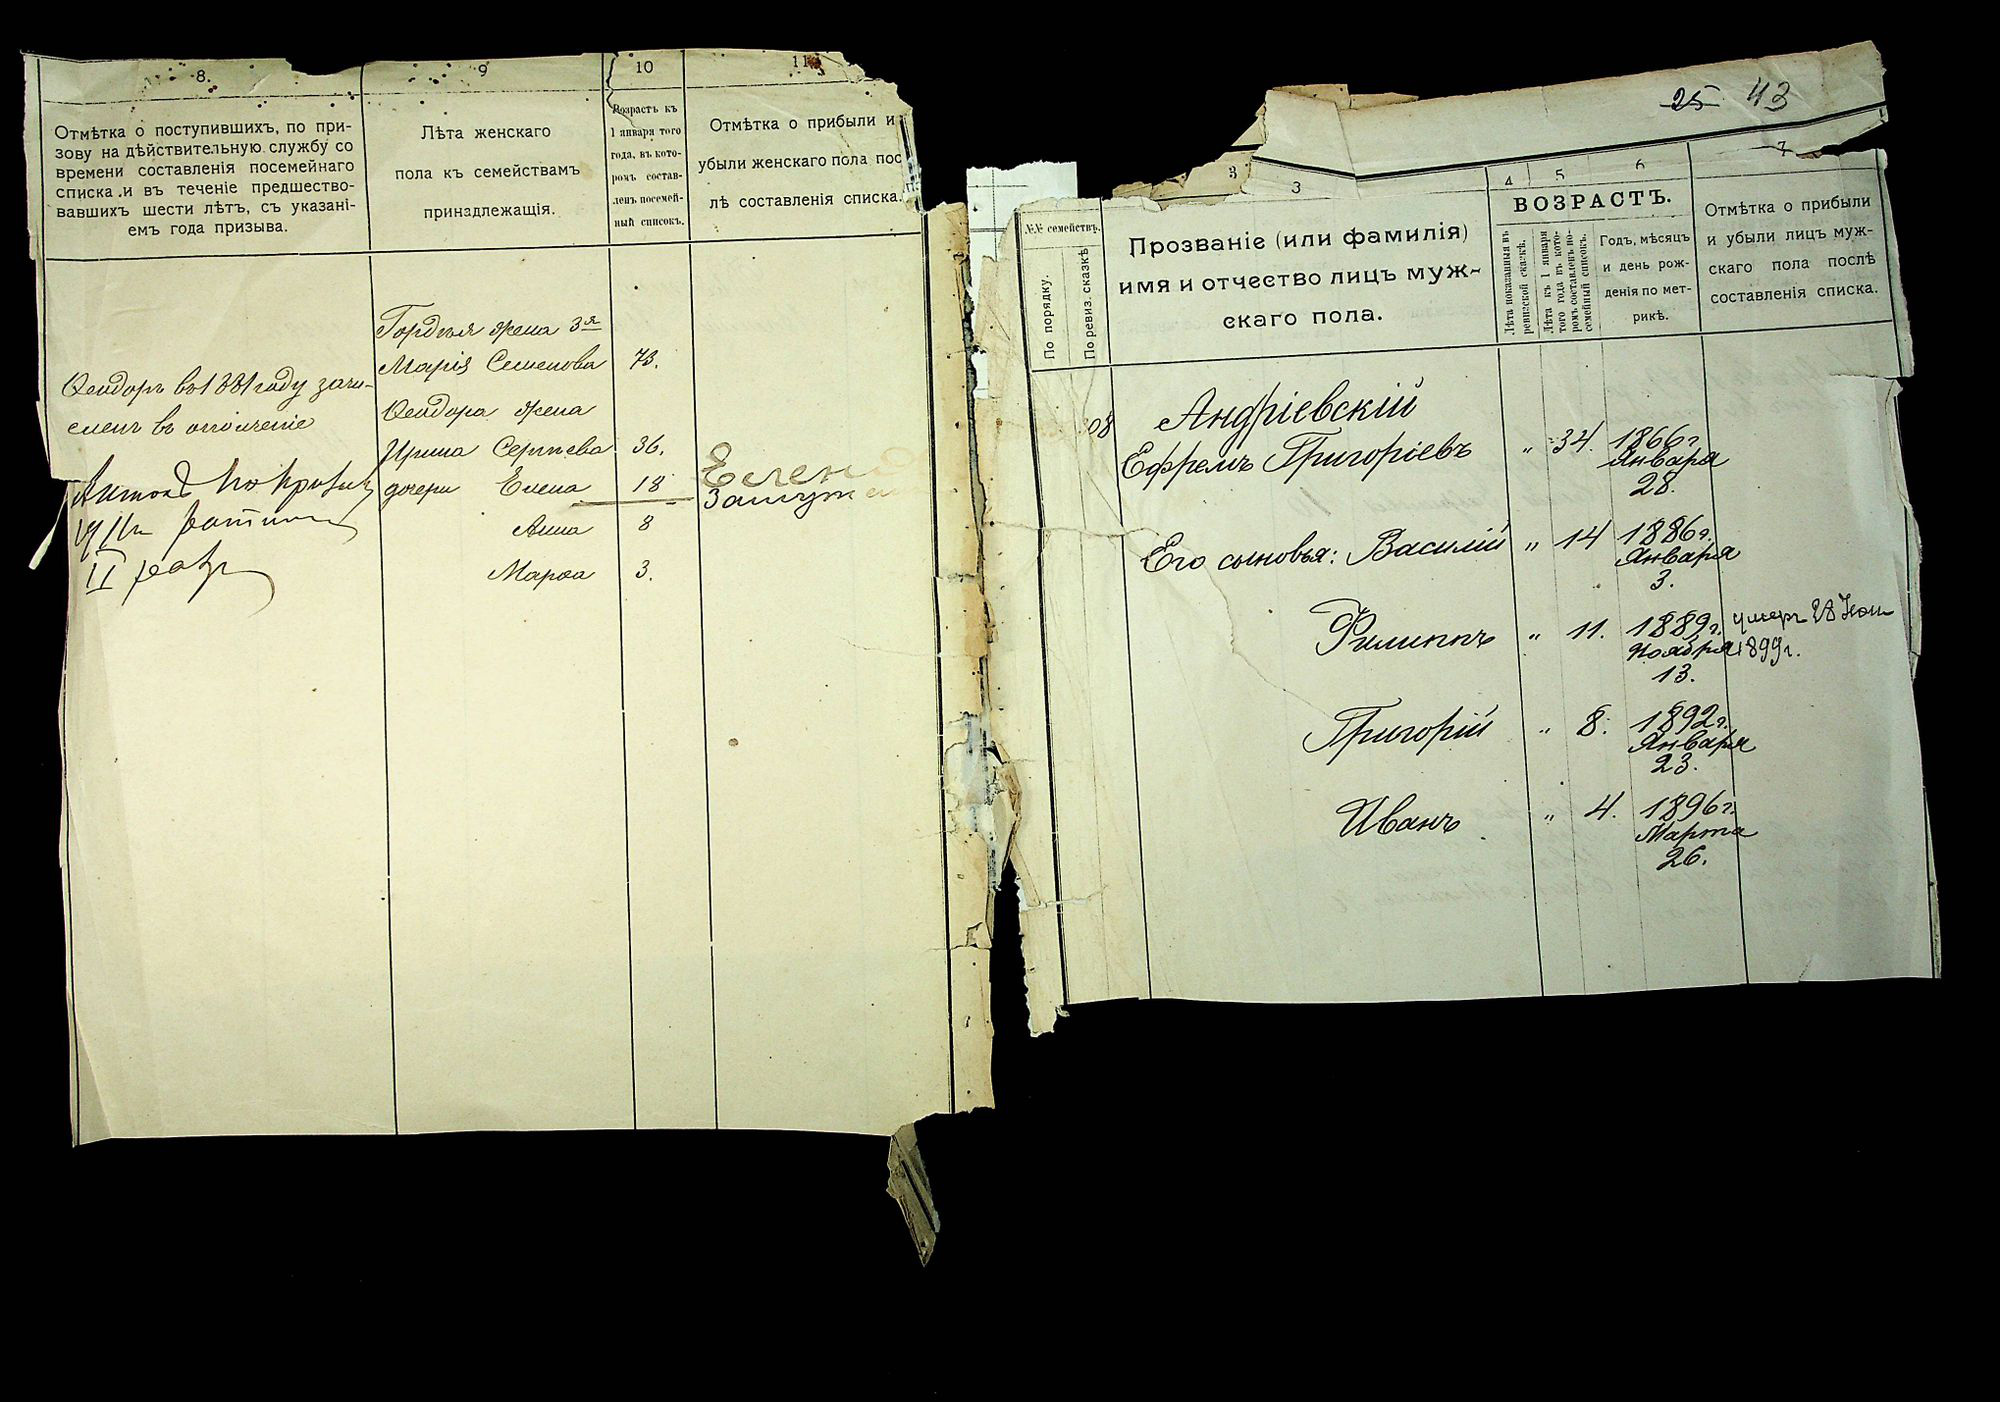 8.
9
10
11
Отмѣтка о поступившихъ, по при-
зову на дѣйствительную службу со
времени составленія посемейнаго
списка и въ теченіе предшество-
вавшихъ шести лѣтъ, съ указані-
емъ года призыва.
Лѣта женскаго
пола къ семействамъ
принадлежащія.
Возрастъ къ
1 января того
года, въ кото-
ромъ состав-
ленъ посемей-
ный списокъ.
Отмѣтка о прибыли и
убыли женскаго пола пос
лѣ составленія списка.
Ѳеодоръ въ 1881 году зачи-
сленъ въ ополченіе
Гордѣя жена 3я
Марія Семенова 73.
Ѳеодора жена
Ирина Сергѣева 36.
дочери Елена 18
Елена
Замуж
Анна 8
Марѳа 3.
25 43
3
3
4
5
6
7
№№ семействъ.
По порядку.
По ревиз. сказкѣ
Прозваніе (или фамилія)
имя и отчество лицъ муж-
скаго пола.
ВОЗРАСТЪ.
Лѣта показанныя въ
ревизской сказкѣ.
Лѣта къ 1 января
того года въ кото-
ромъ составленъ по-
семейный списокъ.
Годъ, мѣсяцъ
и день рож-
денія по мет-
рикѣ.
Отмѣтка о прибыли
и убыли лицъ муж-
скаго пола послѣ
составленія списка.
08 Андріевскій
Ефремъ Григоріевъ " 34. 1866 г.
Января
28.
Его сыновья: Василій " 14 1886 г.
Января
3.
Филиппъ " 11. 1889 г. умеръ 28
Ноября 1899 г.
13.
Григорій " 8. 1892 г.
Января
23.
Иванъ " 4. 1896 г.
Марта
26.